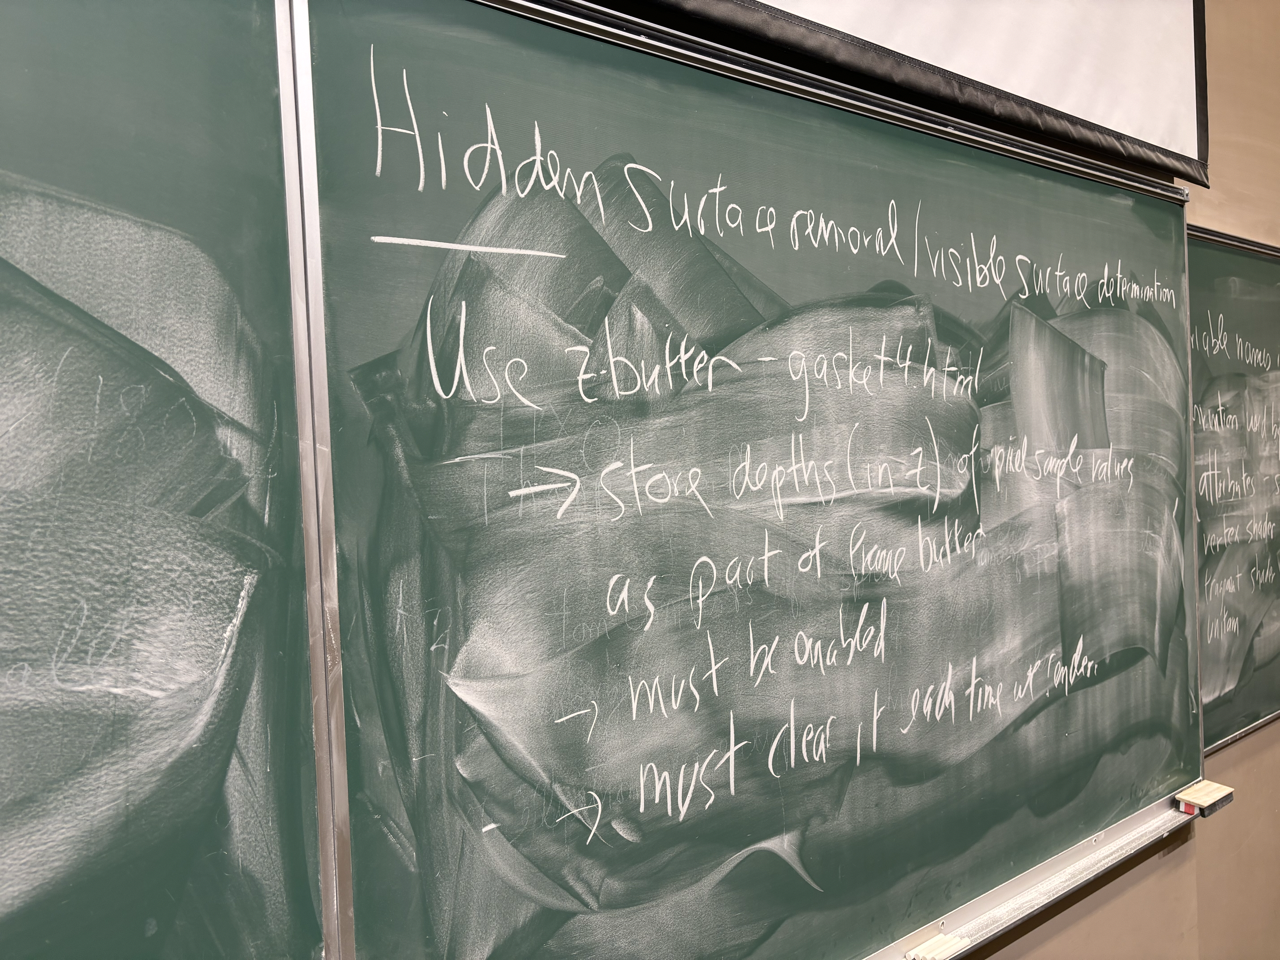 Hidden surface removal / visible surface determination
Use z-buffer - gasket4.html
→ store depths (in z) of pixel sample values
as part of frame buffer
→ must be enabled
→ must clear it each time we render.
names
attributes
vertex shader
shader